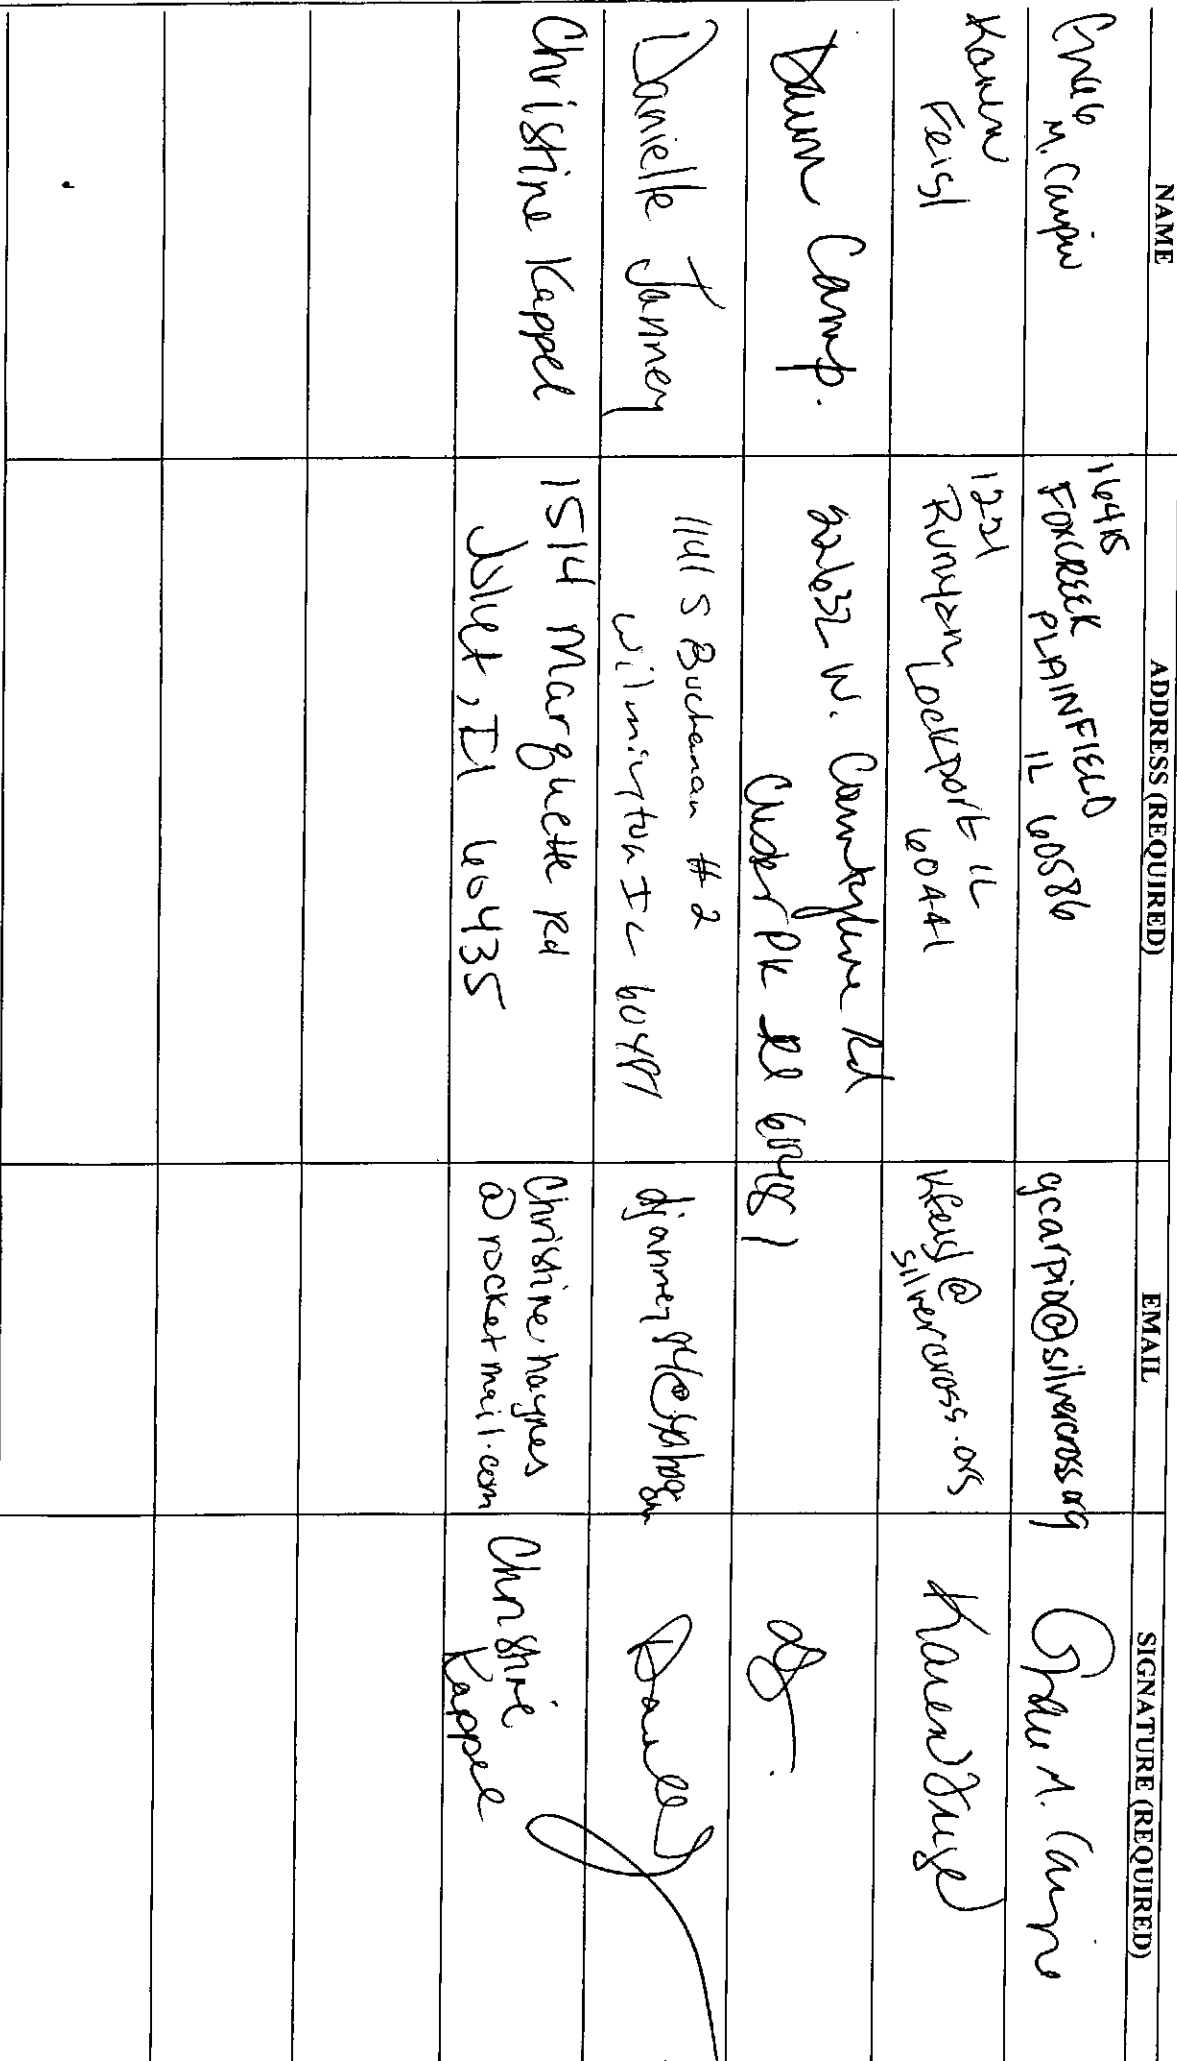 NAME ADDRESS (REQUIRED) EMAIL SIGNATURE (REQUIRED)
M. Carpio
16415
FOXCREEK
PLAINFIELD
IL 60586
gcarpio@silvercross.org
M. Carpio
Karen
Feisl
1221
Runyan Lockport IL
60441
Kfeisl@
silvercross.org
Karen Feisl
Dawn Camp.
22632 W. Countyline Rd
Custer Pk Il 60481
Danielle Janney
1141 S Buchanan #2
Wilmington IL 60481
Danielle
Christine Kappel
1514 Marquette Rd
Joliet, Il 60435
Christine.haynes
@rocketmail.com
Christine
Kappel